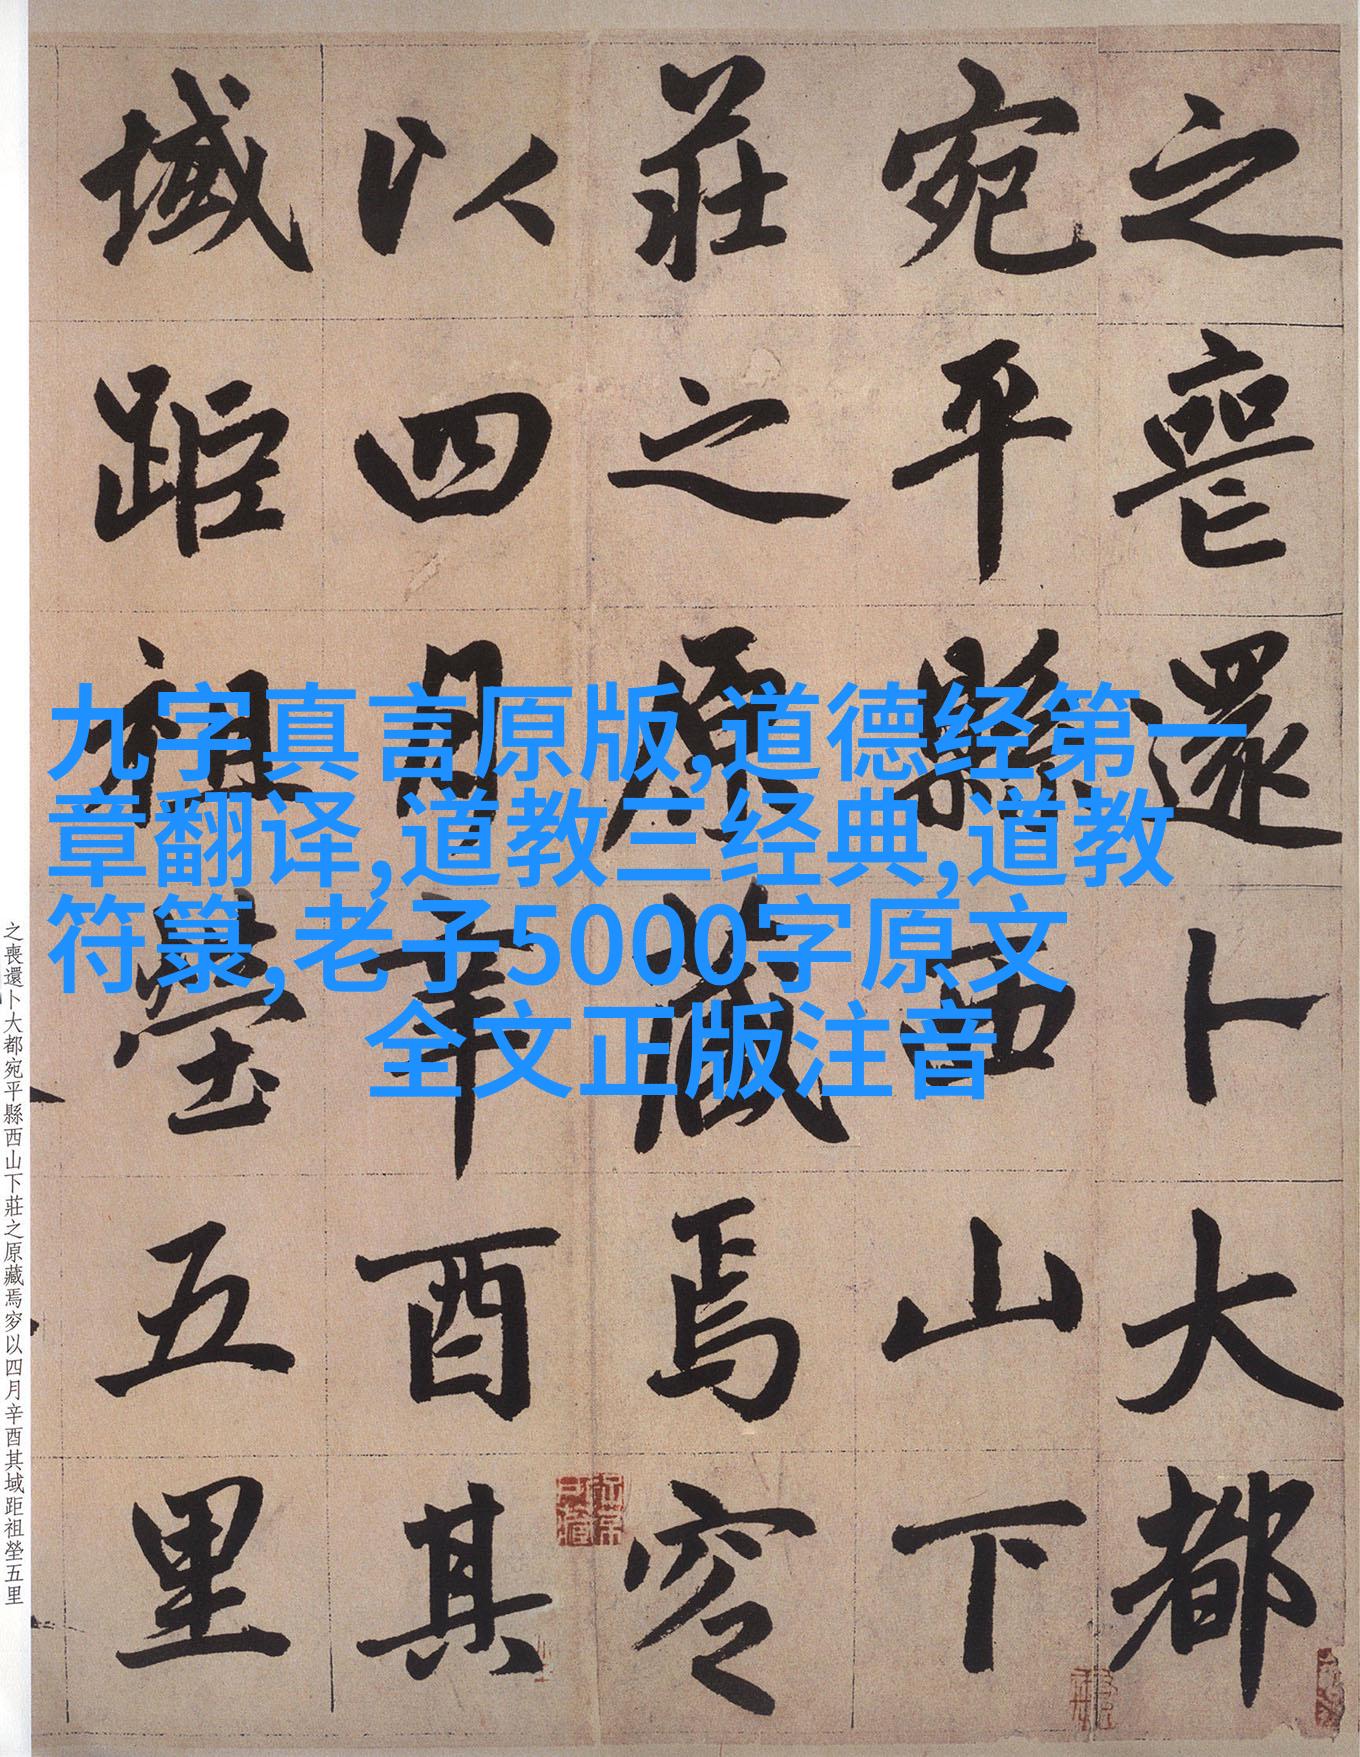 之喪還卜大都
宛平縣西山下
莊之原藏焉穸
以四月辛酉其
域距祖塋五里
九字真言原版,道德经第一
章翻译,道教三经典,道教
符箓,老子5000字原文
全文正版注音
之喪還卜大都宛平縣西山下莊之原藏焉穸以四月辛酉其域距祖塋五里